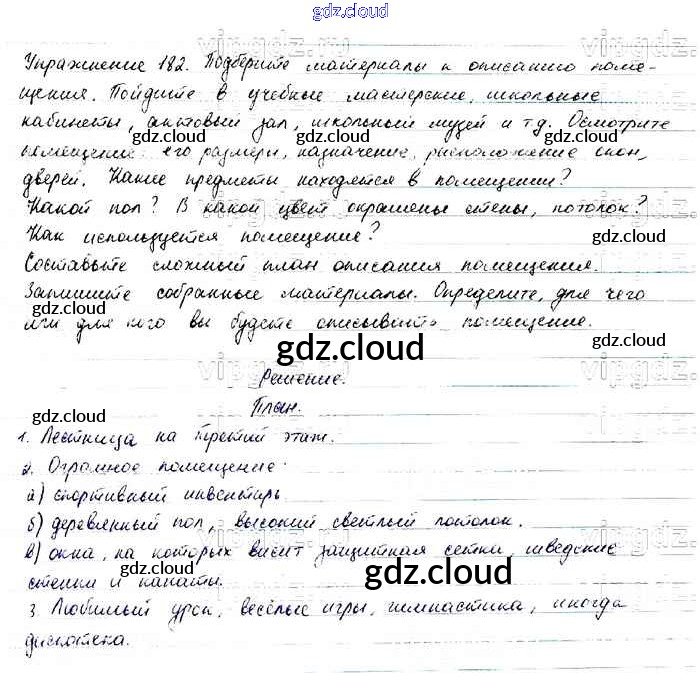 gdz.cloud
Упражнение 182. Подберите материалы к описанию поме-
щения. Пойдите в учебные мастерские, школьные
кабинеты, актовый зал, школьный музей и т.д. Осмотрите
помещение: его размеры, назначение, расположение окон,
дверей. Какие предметы находятся в помещении?
Какой пол? В какой цвет окрашены стены, потолок?
Как используется помещение?
Составьте сложный план описания помещения.
Запишите собранные материалы. Определите, для чего
или для кого вы будете описывать помещение.
gdz.cloud
Решение.
План.
1. Лестница на третий этаж.
2. Огромное помещение:
а) спортивный инвентарь
б) деревянный пол, высокий светлый потолок.
в) окна, на которых висит защитная сетка, шведские
стенки и канаты.
gdz.cloud
3. Любимый урок, весёлые игры, гимнастика, иногда
дискотека.